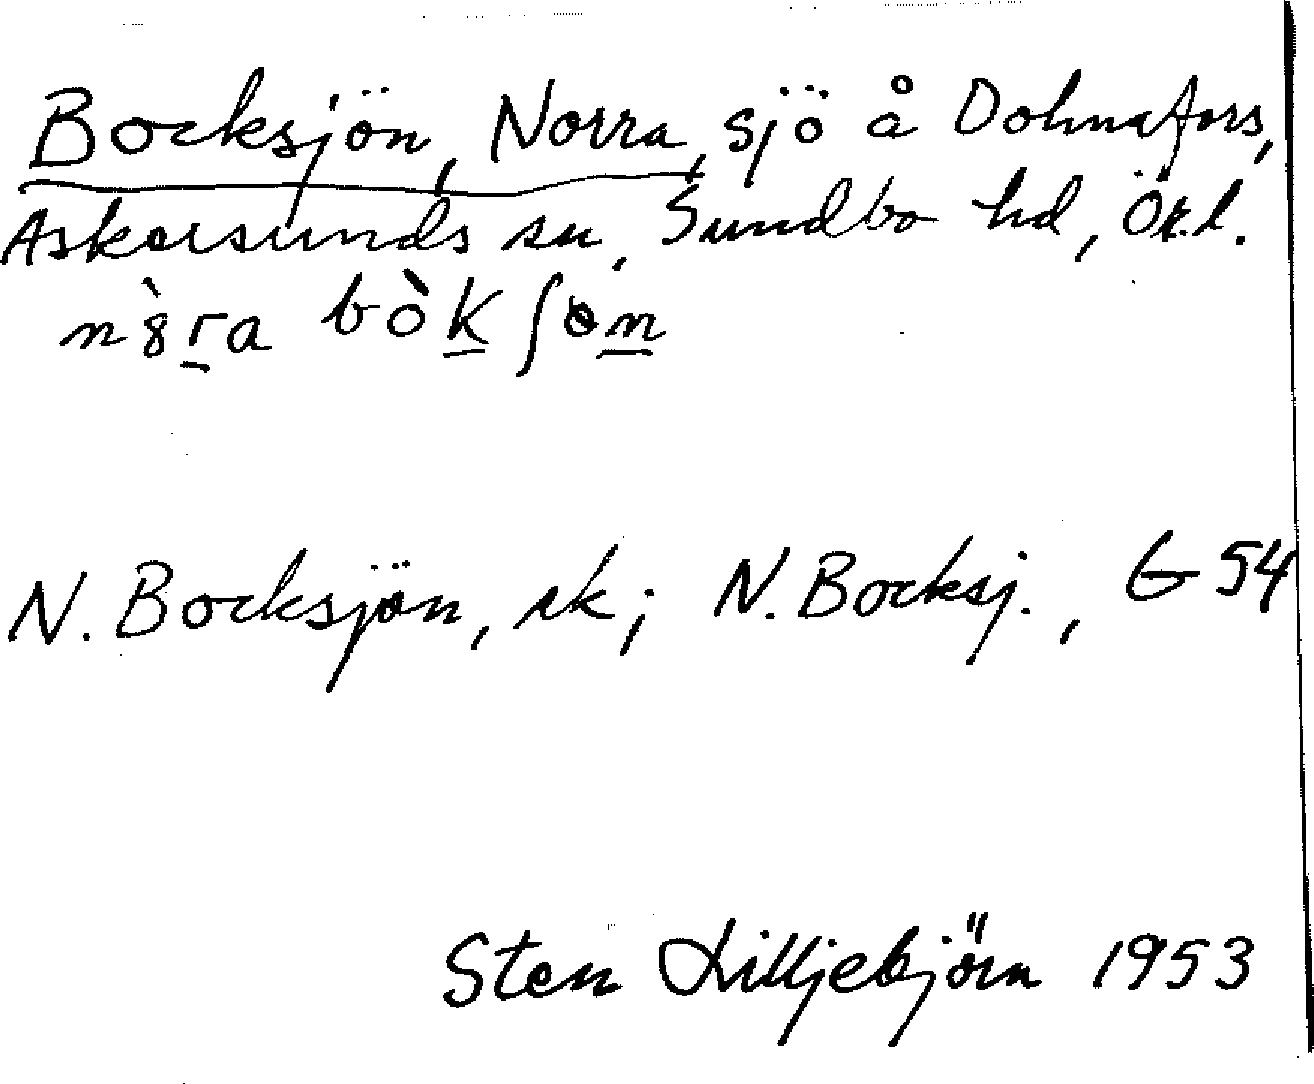 Bocksjön, Norra, sjö å Dohnafors,
Askersunds sn, Sundbo hd, Ör.l.
n bòkʃɵn
N. Bocksjön, rk; N. Bocksj., G 54
Sten Lilljebjörn 1953